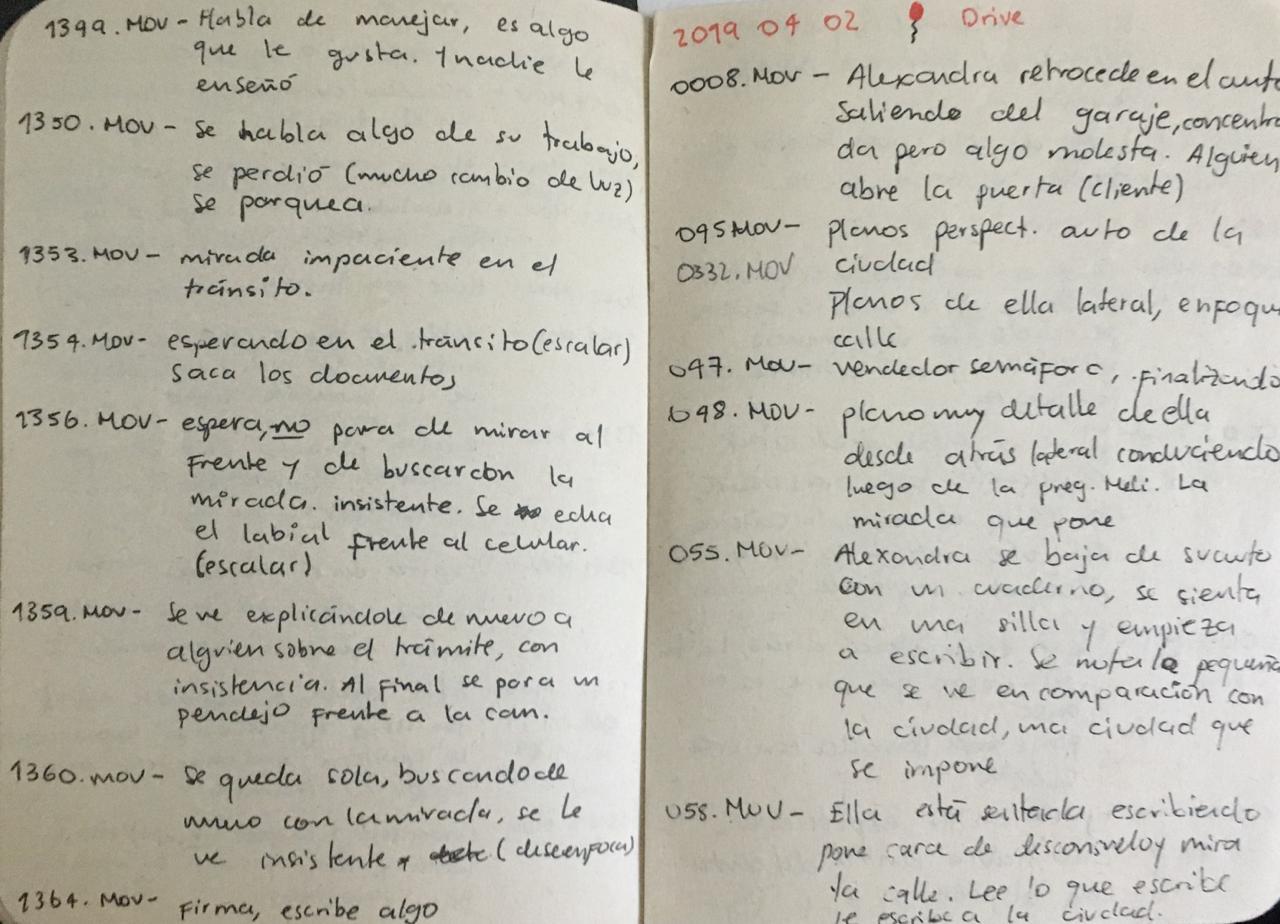 1349.MOV - Habla de manejar, es algo
que le gusta. Y nadie le
enseñó
1350.MOV - Se habla algo de su trabajo,
se perdió (mucho cambio de luz)
se parquea.
1353.MOV - mirada impaciente en el
tránsito.
1354.MOV - esperando en el tránsito (escalar)
saca los documentos
1356.MOV - espera, no para de mirar al
frente y de buscar con la
mirada. insistente. Se echa
el labial frente al celular.
(escalar)
1359.MOV - Se ve explicándole de nuevo a
alguien sobre el trámite, con
insistencia. Al final se para un
pendejo frente a la cam.
1360.MOV - Se queda sola, buscando de
nuevo con la mirada, se le
ve insistente (desenfoca)
1364.MOV - Firma, escribe algo
2019 04 02 Drive
0008.MOV - Alexandra retrocede en el auto
saliendo del garaje, concentra
da pero algo molesta. Alguien
abre la puerta (cliente)
095MOV - planos perspect. auto de la
0332.MOV ciudad
Planos de ella lateral, enfoque
calle
097.MOV - vendedor semáforo, finalizando
098.MOV - plano muy detalle de ella
desde atrás lateral conduciendo
luego de la preg. Meli. La
mirada que pone
055.MOV - Alexandra se baja de su auto
con un cuaderno, se sienta
en una silla y empieza
a escribir. Se nota lo pequeña
que se ve en comparación con
la ciudad, una ciudad que
se impone
058.MOV - Ella está sentada escribiendo
pone cara de desconsuelo y mira
la calle. Lee lo que escribe
le escribe a la ciudad.